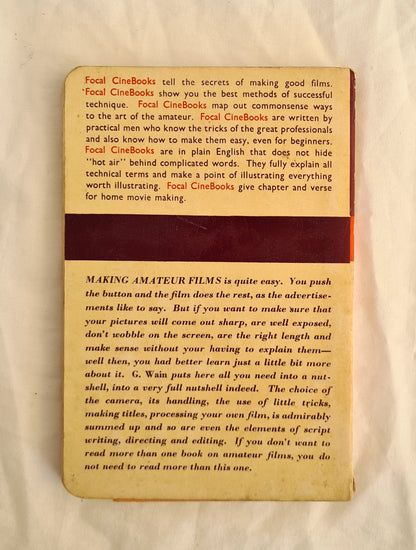 Focal CineBooks tell the secrets of making good films.
Focal CineBooks show you the best methods of successful
technique. Focal CineBooks map out commonsense ways
to the art of the amateur. Focal CineBooks are written by
practical men who know the tricks of the great professionals
and also know how to make them easy, even for beginners.
Focal CineBooks are in plain English that does not hide
"hot air" behind complicated words. They fully explain all
technical terms and make a point of illustrating everything
worth illustrating. Focal CineBooks give chapter and verse
for home movie making.
MAKING AMATEUR FILMS is quite easy. You push
the button and the film does the rest, as the advertise-
ments like to say. But if you want to make sure that
your pictures will come out sharp, are well exposed,
don't wobble on the screen, are the right length and
make sense without your having to explain them—
well then, you had better learn just a little bit more
about it. G. Wain puts here all you need into a nut-
shell, into a very full nutshell indeed. The choice of
the camera, its handling, the use of little tricks,
making titles, processing your own film, is admirably
summed up and so are even the elements of script
writing, directing and editing. If you don't want to
read more than one book on amateur films, you do
not need to read more than this one.